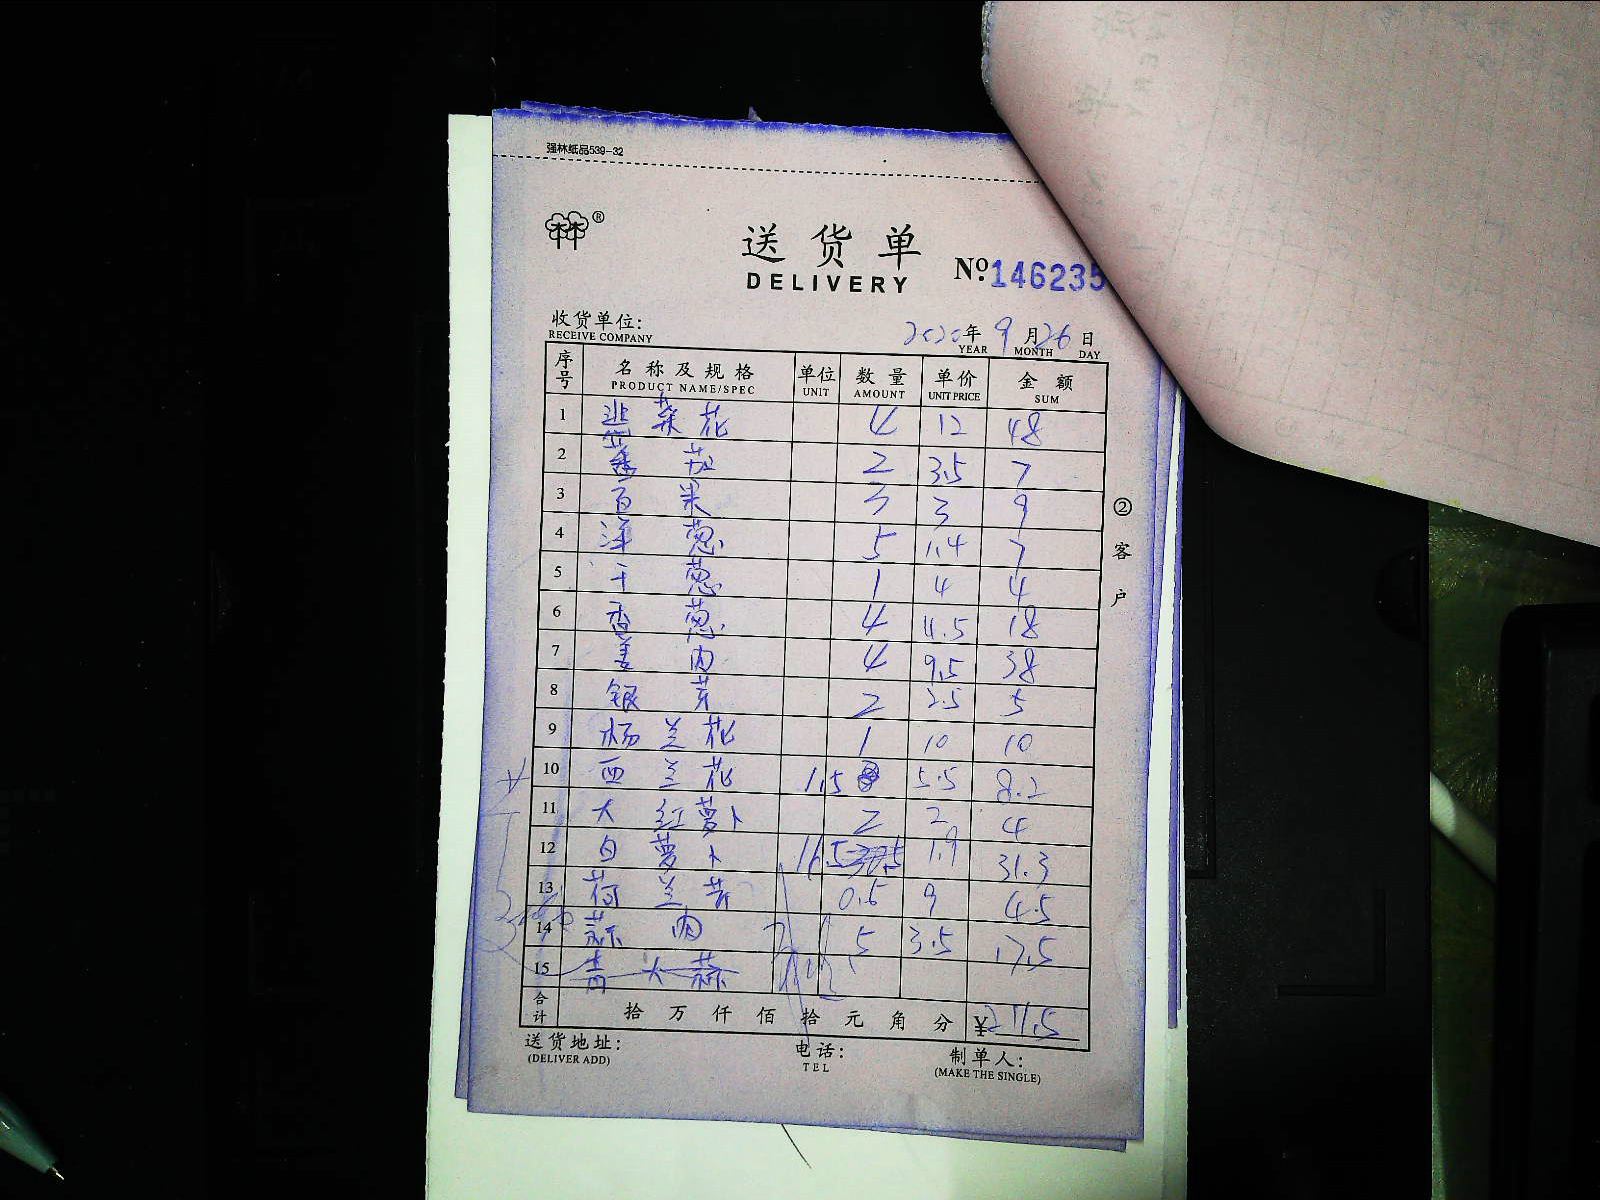 强林纸品539-32
®
送货单
DELIVERY
№146235
收货单位:
RECEIVE COMPANY
2020年9月26日
YEAR MONTH DAY
序号 名称及规格 单位 数量 单价 金额
PRODUCT NAME/SPEC UNIT AMOUNT UNIT PRICE SUM
1 韭菜花 4 12 48
2 番茄 2 3.5 7
3 3 3 9
4 洋葱 5 1.4 7
5 干葱 1 4 4
6 香葱 4 4.5 18
7 姜肉 4 9.5 38
8 银芽 2 2.5 5
9 杨兰花 1 10 10
10 西兰花 1.5 5.5 8.2
11 大红萝卜 2 2 4
12 白萝卜 16.5 1.9 31.3
13 荷兰芹 0.5 9 4.5
14 蒜肉 5 3.5 17.5
15 青大蒜
合计 拾万仟佰拾元角分 ¥211.5
送货地址: 电话: 制单人:
(DELIVER ADD) TEL (MAKE THE SINGLE)
②客户